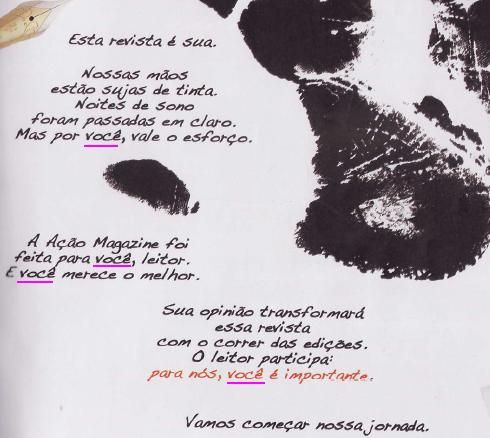 Esta revista é sua.
Nossas mãos
estão sujas de tinta.
Noites de sono
foram passadas em claro.
Mas por você, vale o esforço.
A Ação Magazine foi
feita para você, leitor.
E você merece o melhor.
Sua opinião transformará
essa revista
com o correr das edições.
O leitor participa:
para nós, você é importante.
Vamos começar nossa jornada.